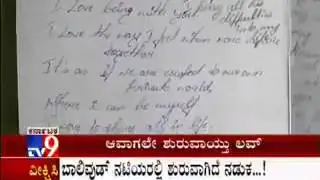 I Love being with you
difficulties
I Love the way I feel when we're
together
It's as if we are escaped to our own
private world,
Where I can be myself
ಕರ್ನಾಟಕ
TV9
ಆವಾಗಲೇ ಶುರುವಾಯ್ತು ಲವ್
ವೀಕ್ಷಿಸಿ
ಬಾಲಿವುಡ್ ನಟಿಯರಲ್ಲಿ ಶುರುವಾಗಿದೆ ನಡುಕ...!